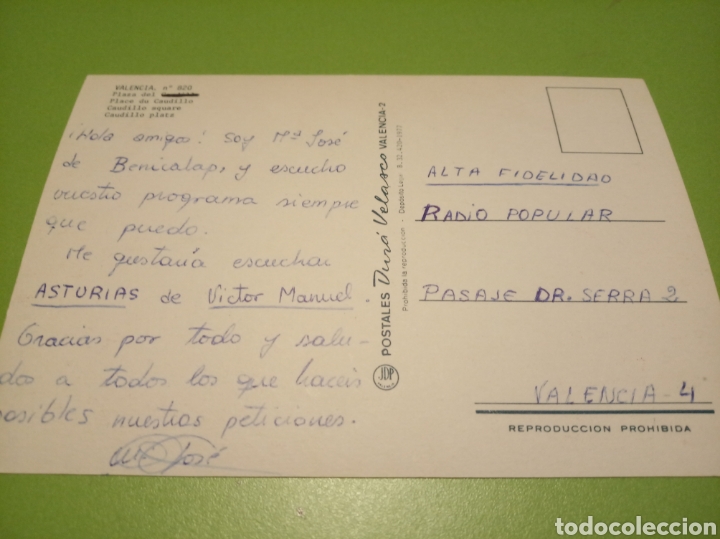 VALENCIA, nº 820
Plaza del
Place du Caudillo
Caudillo square
Caudillo platz
¡Hola amigos! Soy Mª José
de Benicalap, y escucho
vuestro programa siempre
que puedo.
Me gustaría escuchar
ASTURIAS de Victor Manuel.
Gracias por todo y salu-
dos a todos los que haceis
posibles nuestras peticiones.
Mª José
POSTALES Durá Velasco VALENCIA-2
Prohibida la reproducción - Depósito Legal
JDP
ALTA FIDELIDAD
RADIO POPULAR
PASAJE DR. SERRA 2
VALENCIA-4
REPRODUCCION PROHIBIDA
todocoleccion